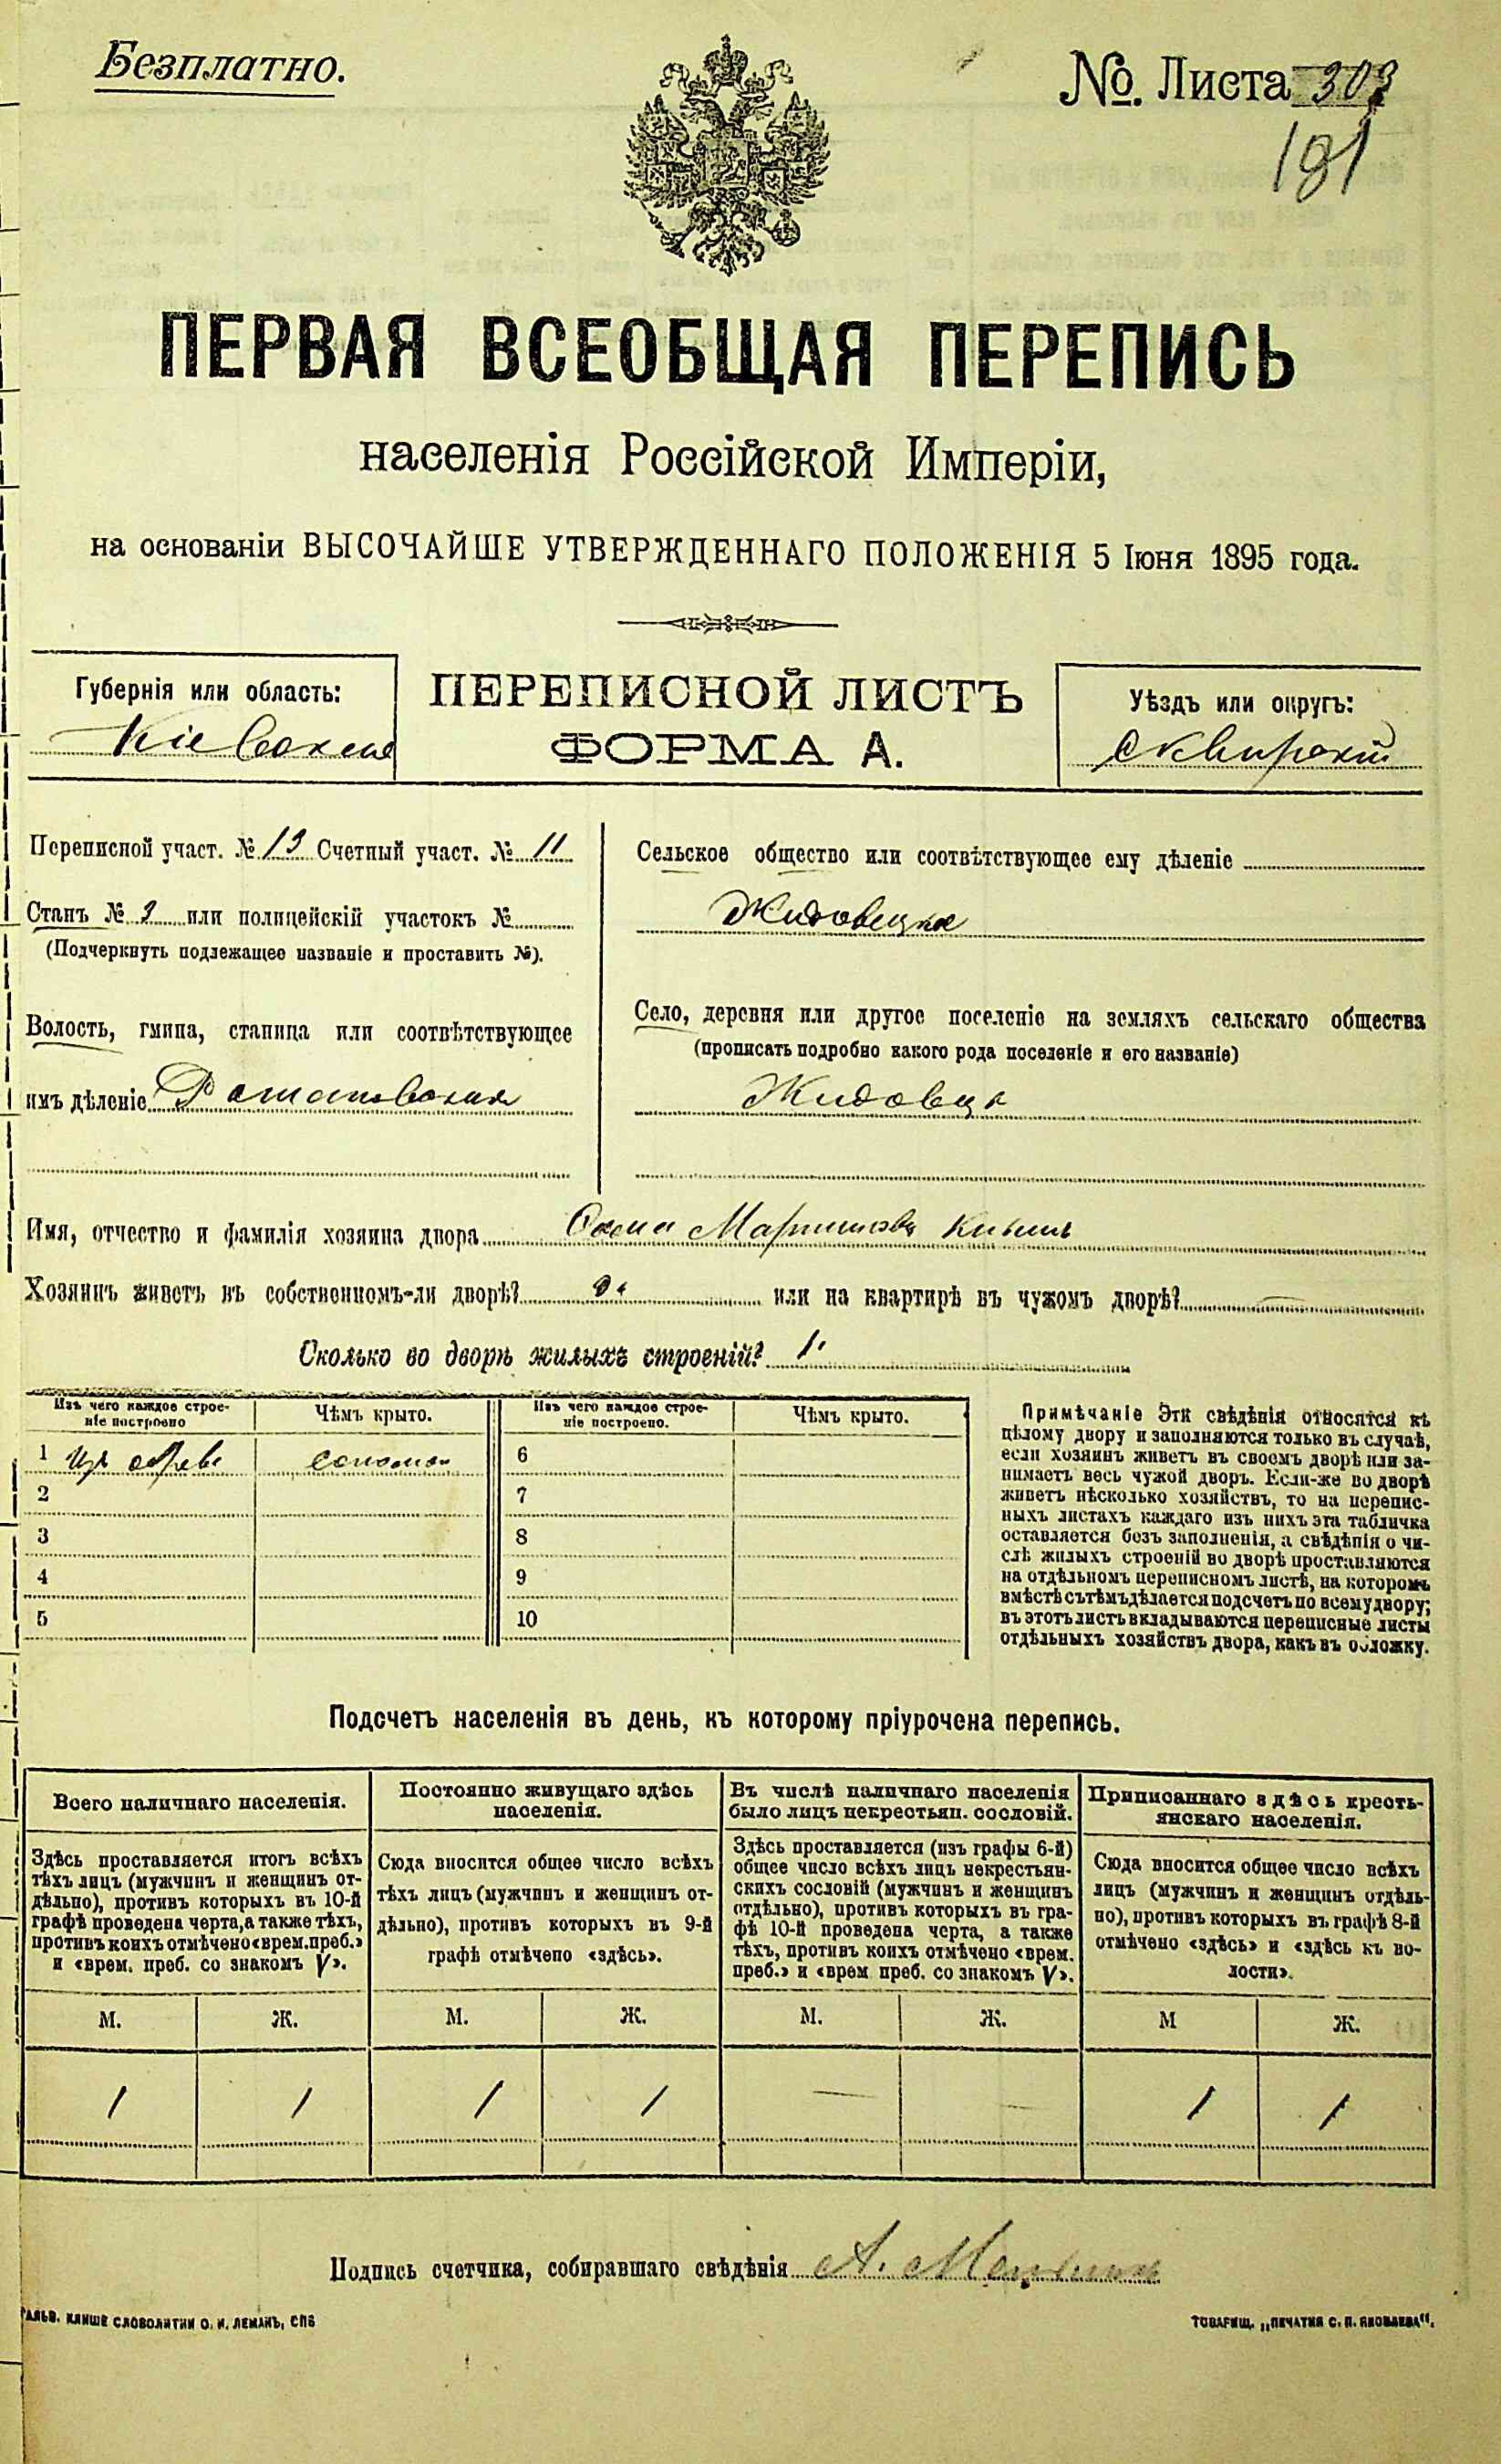 Безплатно.
№. Листа 303
181
ПЕРВАЯ ВСЕОБЩАЯ ПЕРЕПИСЬ
населенія Россійской Имперіи,
на основаніи ВЫСОЧАЙШЕ УТВЕРЖДЕННАГО ПОЛОЖЕНІЯ 5 Іюня 1895 года.
Губернія или область:
Кіевская
ПЕРЕПИСНОЙ ЛИСТЪ
ФОРМА А.
Уѣздъ или округъ:
Сквирскій
Переписной участ. № 13 Счетный участ. № 11
Станъ № 3 или полицейскій участокъ №
(Подчеркнуть подлежащее названіе и проставить №).
Волость, гмина, станица или соотвѣтствующее
имъ дѣленіе
Сельское общество или соотвѣтствующее ему дѣленіе
Жидовецкое
Село, деревня или другое поселеніе на земляхъ сельскаго общества
(прописать подробно какого рода поселеніе и его названіе)
Жидовцы
Имя, отчество и фамилія хозяина двора
Хозяинъ живетъ въ собственномъ-ли дворѣ? или на квартирѣ въ чужомъ дворѣ?
Сколько во дворѣ жилыхъ строеній? 1
Изъ чего каждое строе-
ніе построено
Чѣмъ крыто.
Изъ чего каждое строе-
ніе построено.
Чѣмъ крыто.
1 Изъ дерева соломой
2
3
4
5
6
7
8
9
10
Примѣчаніе Эти свѣдѣнія относятся къ
цѣлому двору и заполняются только въ случаѣ,
если хозяинъ живетъ въ своемъ дворѣ или за-
нимаетъ весь чужой дворъ. Если-же во дворѣ
живетъ нѣсколько хозяйствъ, то на перепис-
ныхъ листахъ каждаго изъ нихъ эта табличка
оставляется безъ заполненія, а свѣдѣнія о чи-
слѣ жилыхъ строеній во дворѣ проставляются
на отдѣльномъ переписномъ листѣ, на которомъ
вмѣстѣ сътѣмъ дѣлается подсчетъ по всему двору;
въ этотъ листъ вкладываются переписные листы
отдѣльныхъ хозяйствъ двора, какъ въ обложку.
Подсчетъ населенія въ день, къ которому пріурочена перепись.
Всего наличнаго населенія.
Постоянно живущаго здѣсь
населенія.
Въ числѣ наличнаго населенія
было лицъ некрестьян. сословій.
Приписаннаго здѣсь кресть-
янскаго населенія.
Здѣсь проставляется итогъ всѣхъ
тѣхъ лицъ (мужчинъ и женщинъ от-
дѣльно), противъ которыхъ въ 10-й
графѣ проведена черта, а также тѣхъ,
противъ коихъ отмѣчено «врем. преб.»
и «врем. преб. со знакомъ V».
Сюда вносится общее число всѣхъ
тѣхъ лицъ (мужчинъ и женщинъ от-
дѣльно), противъ которыхъ въ 9-й
графѣ отмѣчено «здѣсь».
Здѣсь проставляется (изъ графы 6-й)
общее число всѣхъ лицъ некрестьян-
скихъ сословій (мужчинъ и женщинъ
отдѣльно), противъ которыхъ въ гра-
фѣ 10-й проведена черта, а также
тѣхъ, противъ коихъ отмѣчено «врем.
преб.» и «врем преб. со знакомъ V».
Сюда вносится общее число всѣхъ
лицъ (мужчинъ и женщинъ отдѣль-
но), противъ которыхъ въ графѣ 8-й
отмѣчено «здѣсь» и «здѣсь къ во-
лости».
М. Ж. М. Ж. М. Ж. М Ж.
1 1 1 1 — — 1 1
Подпись счетчика, собиравшаго свѣдѣнія А.
ГАЛЬВ. КЛИШЕ СЛОВОЛИТНИ О. И. ЛЕМАНЪ, СПБ
ТОВАРИЩ. „ПЕЧАТНЯ С. П. ЯКОВЛЕВА“.